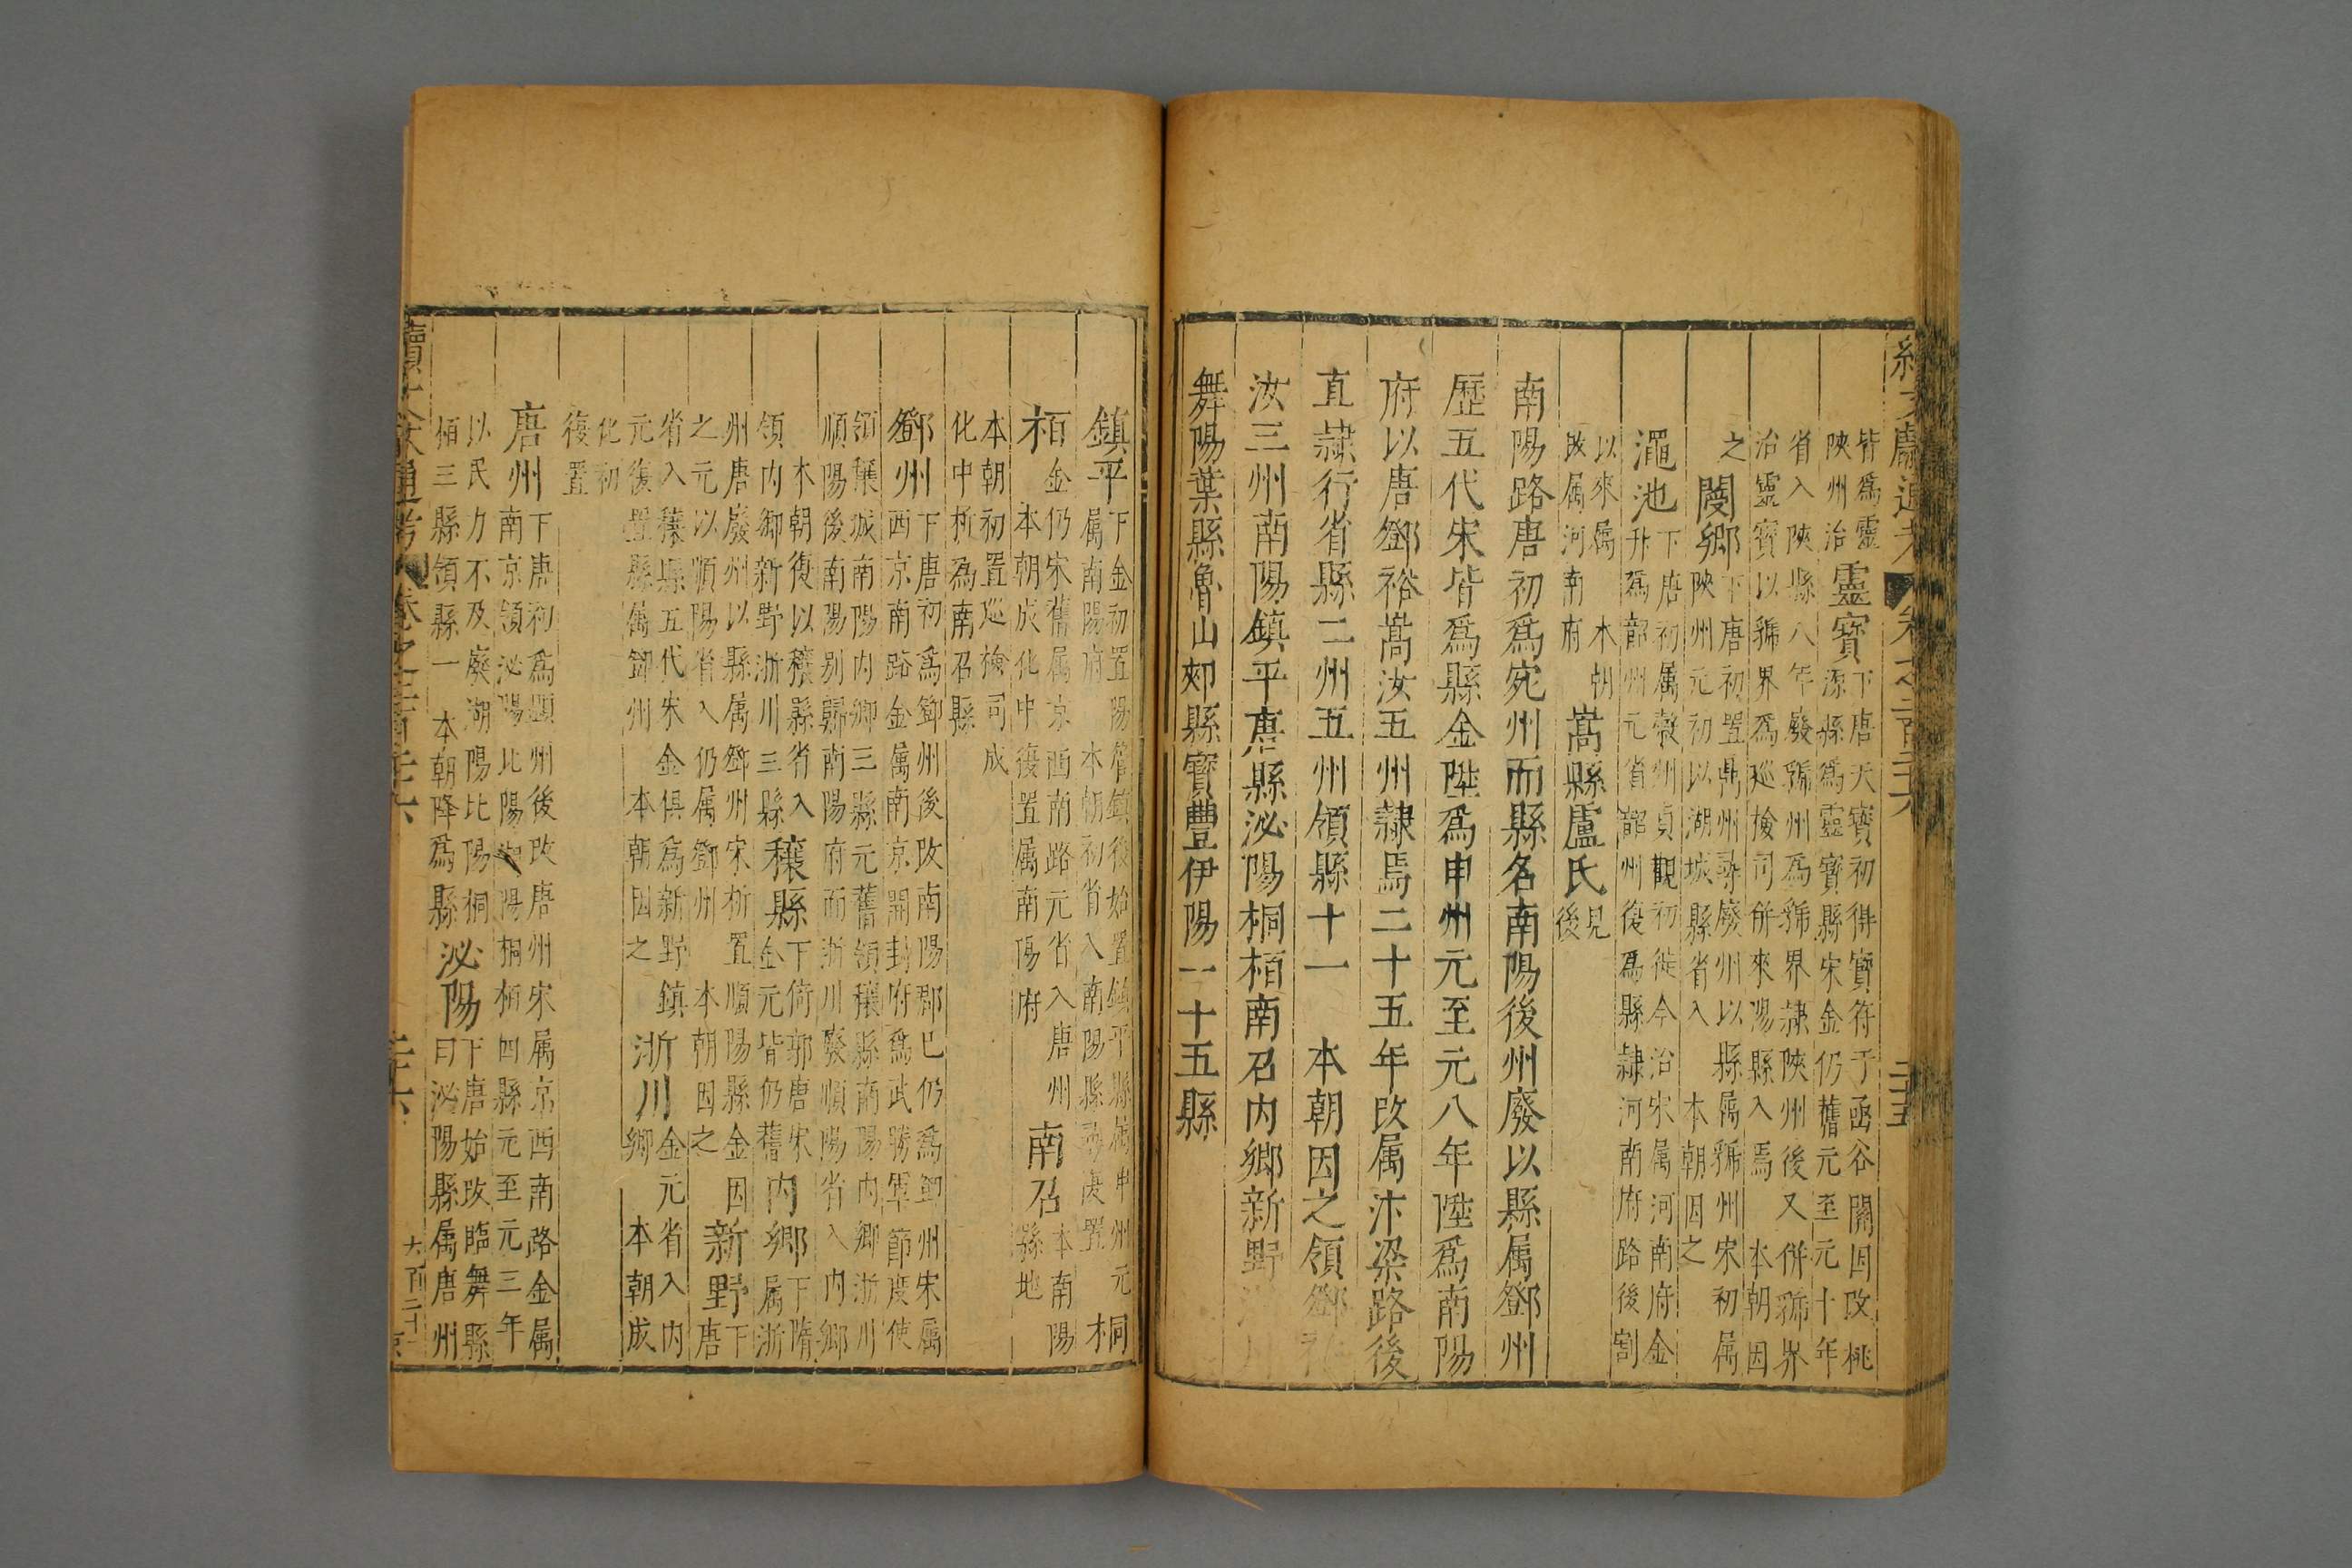 續文獻通考 卷之二百二十六 二十五
皆爲靈
陝州治
靈寶
下唐天寶初得寶符于函谷關因改桃
源縣爲靈寶縣宋金仍舊元至元十年
省入陝縣八年廢虢州爲虢界隷陝州後又併虢界
治靈寶以虢界爲廵檢司併來陽縣入焉 本朝因
之
閿鄉
下唐初置鼎州尋廢州以縣属虢州宋初属
陝州元初以湖城縣省入 本朝因之
澠池
下唐初属榖州貞觀初徙今治宋属河南府金
升爲韶州元省韶州復爲縣隷河南府路後割
以來属 本朝
改属河南府
嵩縣盧氏
見
後
南陽路唐初爲宛州而縣名南陽後州廢以縣属鄧州
歷五代宋皆爲縣金陞爲申州元至元八年陞爲南陽
府以唐鄧裕嵩汝五州隷焉二十五年改属汴梁路後
直隷行省縣二州五州領縣十一 本朝因之領鄧裕
汝三州南陽鎮平唐縣泌陽桐栢南召内鄉新野淅川
舞陽葉縣魯山郟縣寶豊伊陽一十五縣
鎮平
下金初置陽管鎮後始置鎮平縣属申州元
属南陽府 本朝初省入南陽縣尋復置
桐
栢
金仍宋舊属京西南路元省入唐州
本朝成化中復置属南陽府
南召
本南陽
縣地
本朝初置廵檢司成
化中析爲南召縣
鄧州
下唐初爲鄧州後改南陽郡已仍爲鄧州宋属
西京南路金属南京開封府爲武勝軍節度使
領穰城南陽内鄉三縣元舊領穰縣南陽内鄉淅川
順陽後南陽别歸南陽府而淅川廢順陽省入内鄉
本朝復以穰縣省入
領内鄉新野淅川三縣
穰縣
下倚郭唐宋
金元皆仍舊
内鄉
下隋
属淅
州唐廢州以縣属鄧州宋析置順陽縣金因
之元以順陽省入仍属鄧州 本朝因之
新野
下
唐
省入穰縣五代宋金俱爲新野鎮
元復置縣属鄧州 本朝因之
淅川
金元省入内
鄉 本朝成
化初
復置
唐州
下唐初爲顯州後改唐州宋属京西南路金属
南京領泌陽比陽湖陽桐栢四縣元至元三年
以民力不及廢湖陽比陽桐
栢三縣領縣一 本朝降爲縣
泌陽
下唐始改臨舞縣
曰泌陽縣属唐州
續文獻通考 卷之二百二十六 二十六